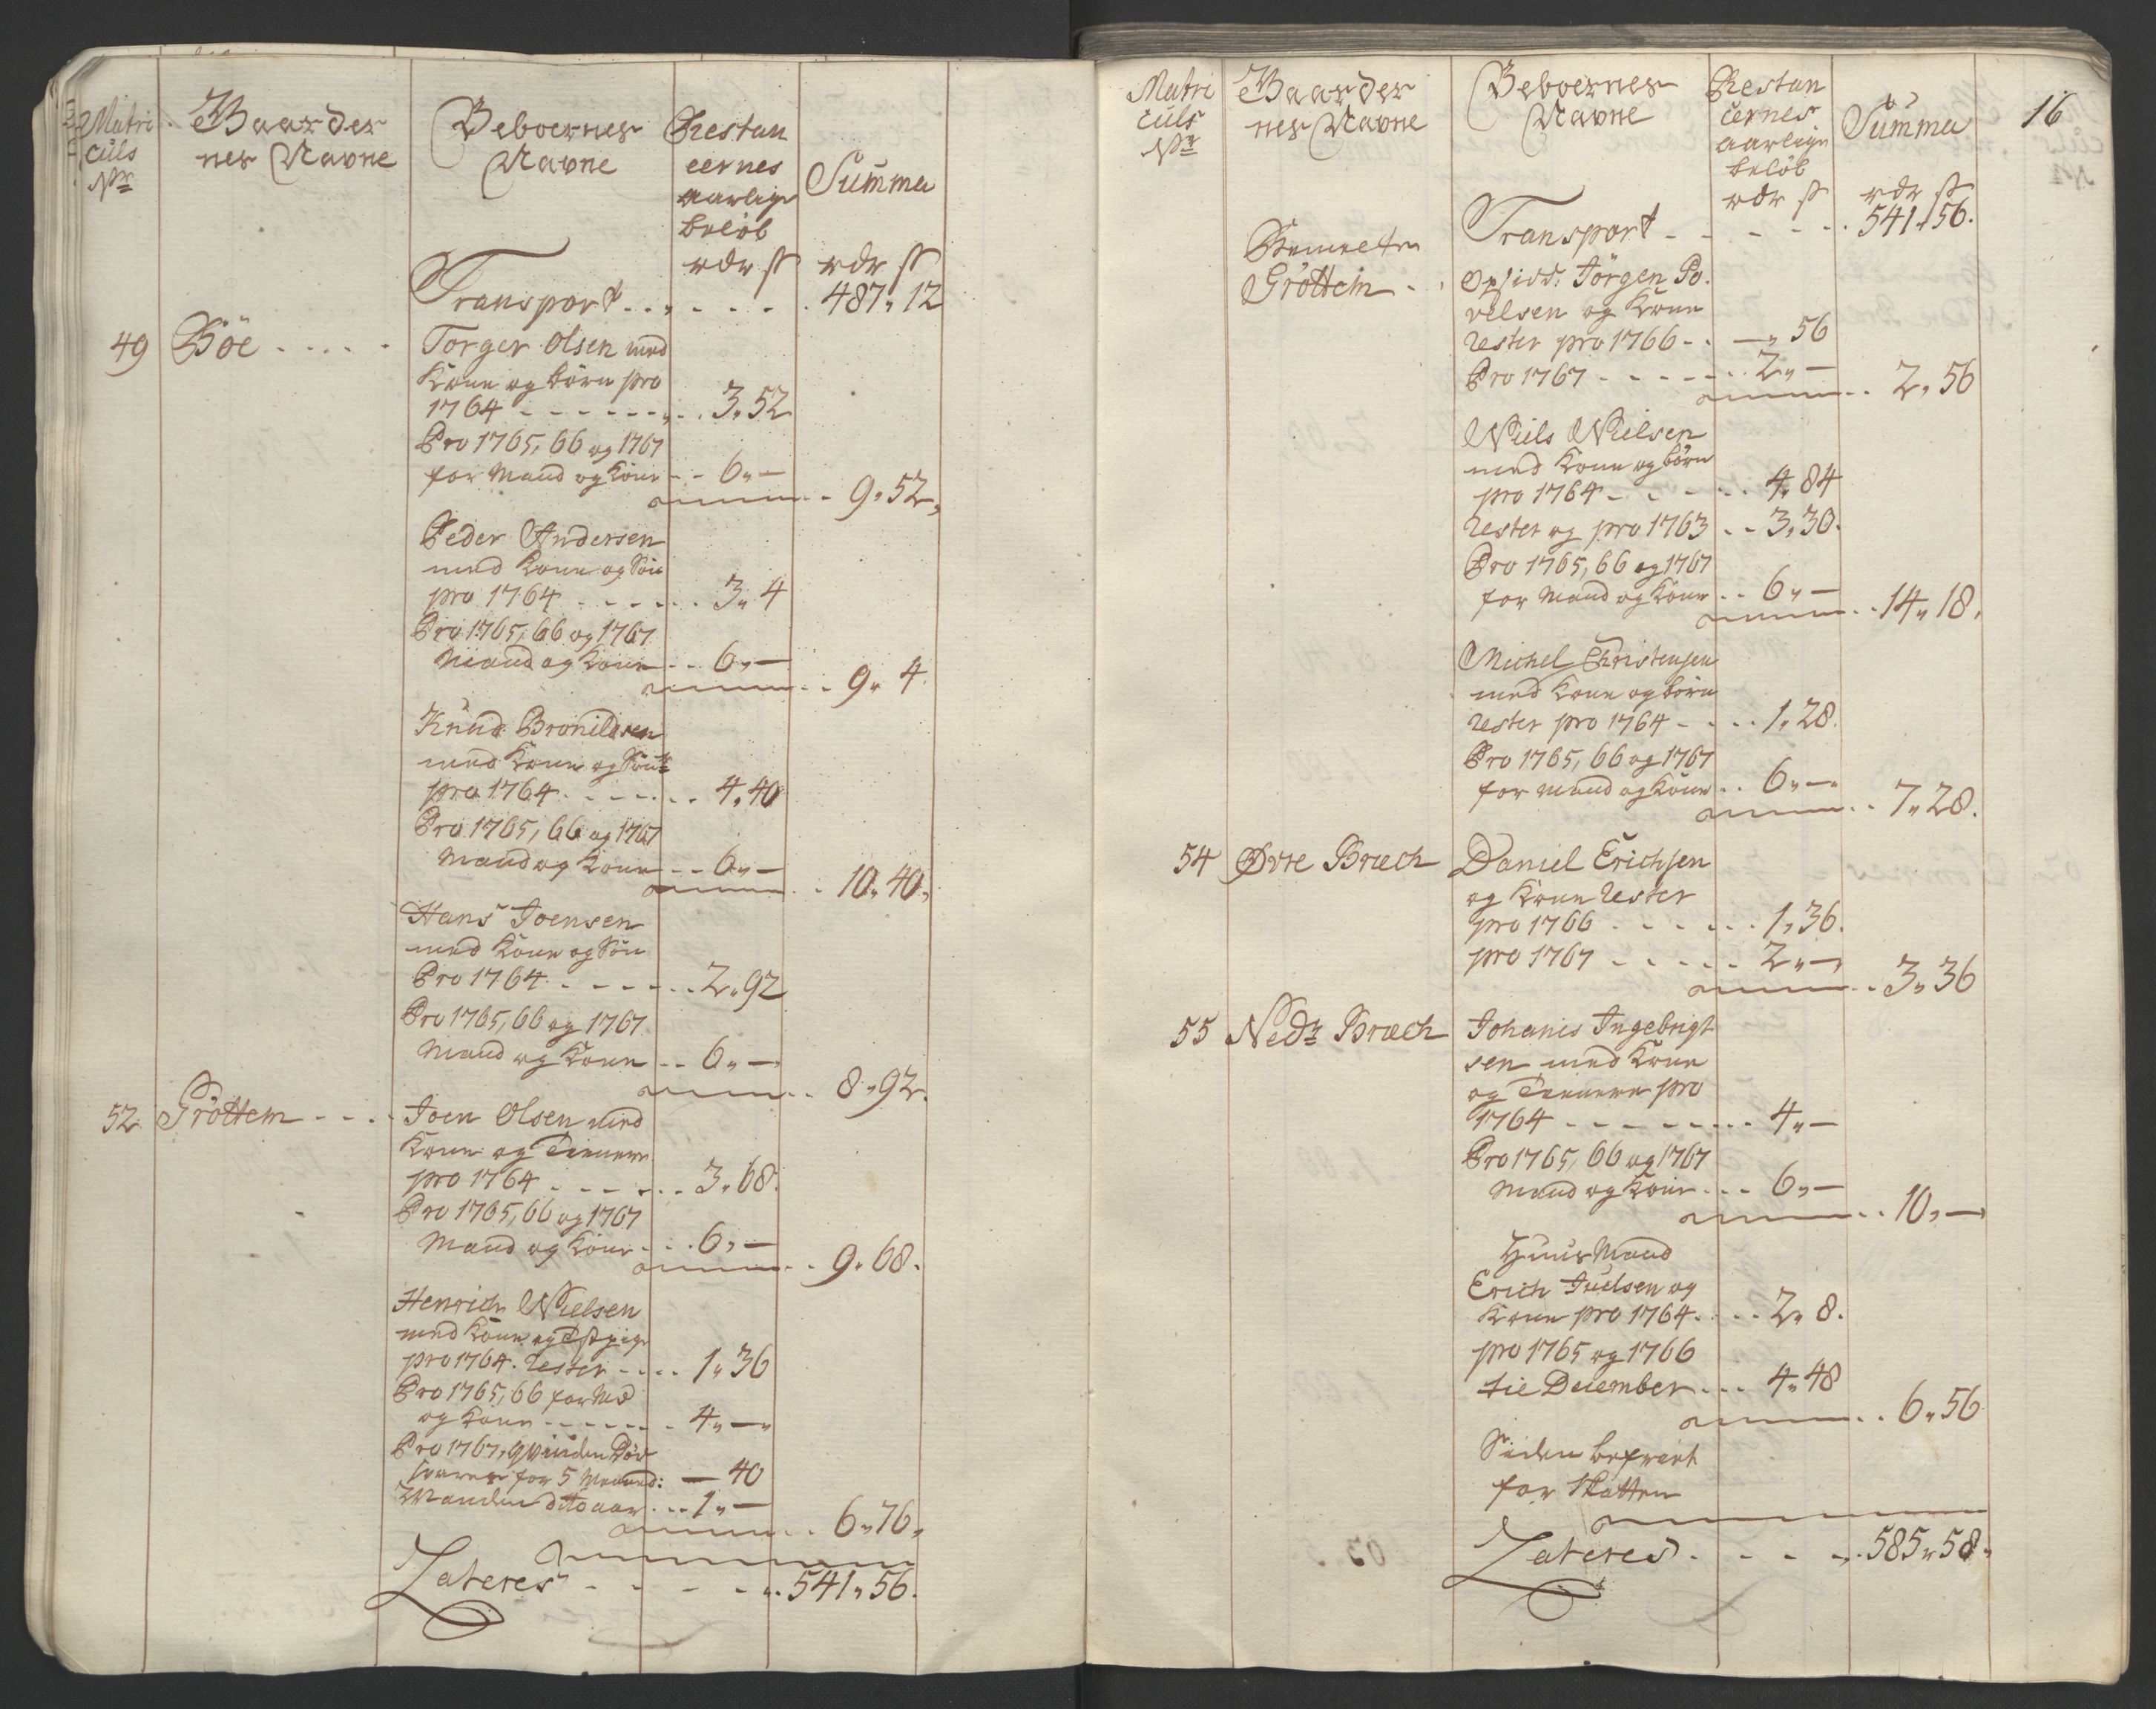 Matri
culs
Nr
Gaarder
nes Navne
Beboernes
Navne
Restan
cernes
aarlige
beløb
rdr s
Summa
rdr s
Transport . . . . . . 487 " 12
49 Böe . . . . . Torger Olsen med
Kone og börn pro
1764 - - - - - - 3 " 52
Pro 1765, 66 og 1767
for Mand og Kone - - 6 " —
9 " 52 "
Peder Andersen
med Kone og Sön
pro 1764 - - - - - 3 " 4
Pro 1765, 66 og 1767
Mand og Kone - - 6 " —
9 " 4
Knud Bronildsen
med Kone og
pro 1764 - - - - - 4 " 40
Pro 1765, 66 og 1767
Mand og Kone - - 6 " —
10 " 40 "
Hans Joensen
med Kone og Sön
Pro 1764 - - - - - 2 " 92
Pro 1765, 66 og 1767
Mand og Kone - - 6 " —
8 " 92
52 Gröttem - - - Joen Olsen med
Kone og Tienere
pro 1764 - - - - - 3 " 68.
Pro 1765, 66 og 1767
Mand og Kone - - 6 " —
9 " 68.
Henrich Nielsen
med Kone og
pro 1764. Rester - - - 1 " 36
Pro 1765, 66 for Md
og Kone - - - - - 4 " —
Pro 1767, Qvinden Död
svarer for 5 Maaned: — 40
Manden dito aar - - 1 " —
6 " 76 "
Lateres - - - - 541 " 56.
16
Matri
culs
Nr
Gaarder
nes Navne
Beboernes
Navne
Restan
cernes
aarlige
beløb
rdr s
Summa
rdr s
Transport - - - - - 541 " 56.
Gröttem - - Opsidd: Jörgen Po-
velsen og Kone
Rester pro 1766 - - — " 56
Pro 1767 - - - - - 2 " —
2 " 56
Niels Nielsen
med Kone og börn
pro 1764 - - - - - 4 " 84
Rester og pro 1763 - - 3 " 30.
Pro 1765, 66 og 1767
for Mand og Kone - - 6 " —
14 " 18.
Michel Christensen
med Kone og börn
Rester pro 1764 - - - 1 " 28.
Pro 1765, 66 og 1767
for Mand og Kone - - 6 " —
7 " 28.
54 Øvre Bræch Daniel Erichsen
og Kone Rester
pro 1766 - - - - - 1 " 36.
pro 1767 - - - - - 2 " —
3 " 36
55 Nedr Bræch Johanis Ingebrigt
sen med Kone
og Tienere pro
1764 - - - - - - 4 " —
Pro 1765, 66 og 1767
Mand og Kone - - - 6 " —
10 " —
HuusMand
Erich Juelsen og
Kone pro 1764 - - - 2 " 8.
pro 1765 og 1766
til December - - - 4 " 48
6 " 56
Siden befriet
for Skatten
Lateres - - - - 585 " 58 "